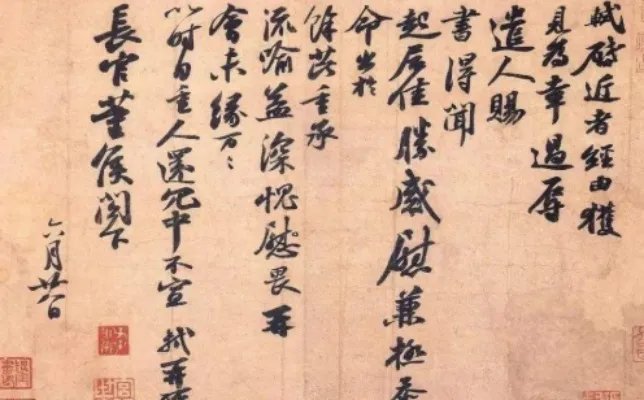 軾啓近者經由獲
見為幸過辱
遣人賜
書得聞
起居佳勝感慰兼極忝
命出於
餘芘重承
流喻益深愧慰畏再
會未緣万〻
以時自重人還冗中不宣 軾再
長官董侯閣下
六月廿八日